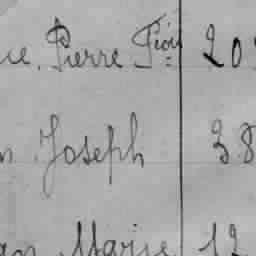 ue. Pierre Fçois 20
n Joseph 38
an Marie 12